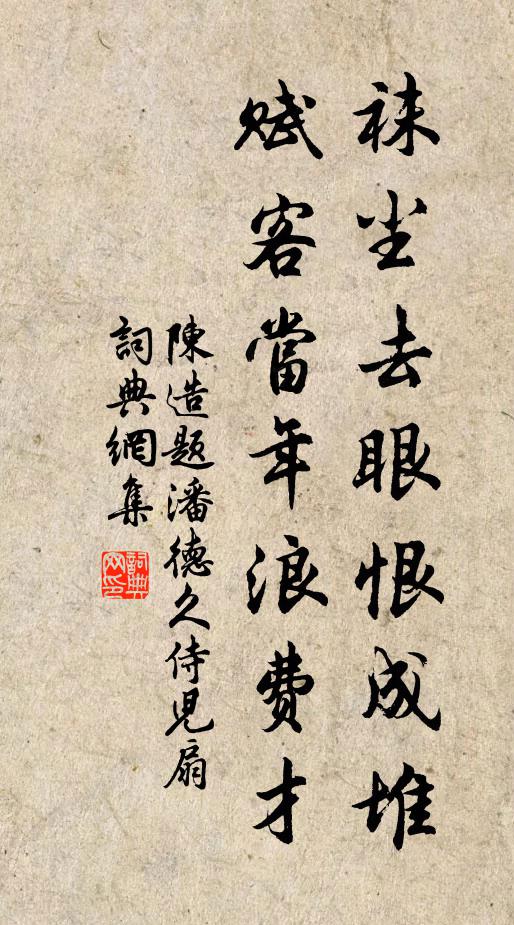 袜尘去眼恨成堆
赋客當年浪费才
陳造题潘德久侍児扇
詞典網集
詞典网印